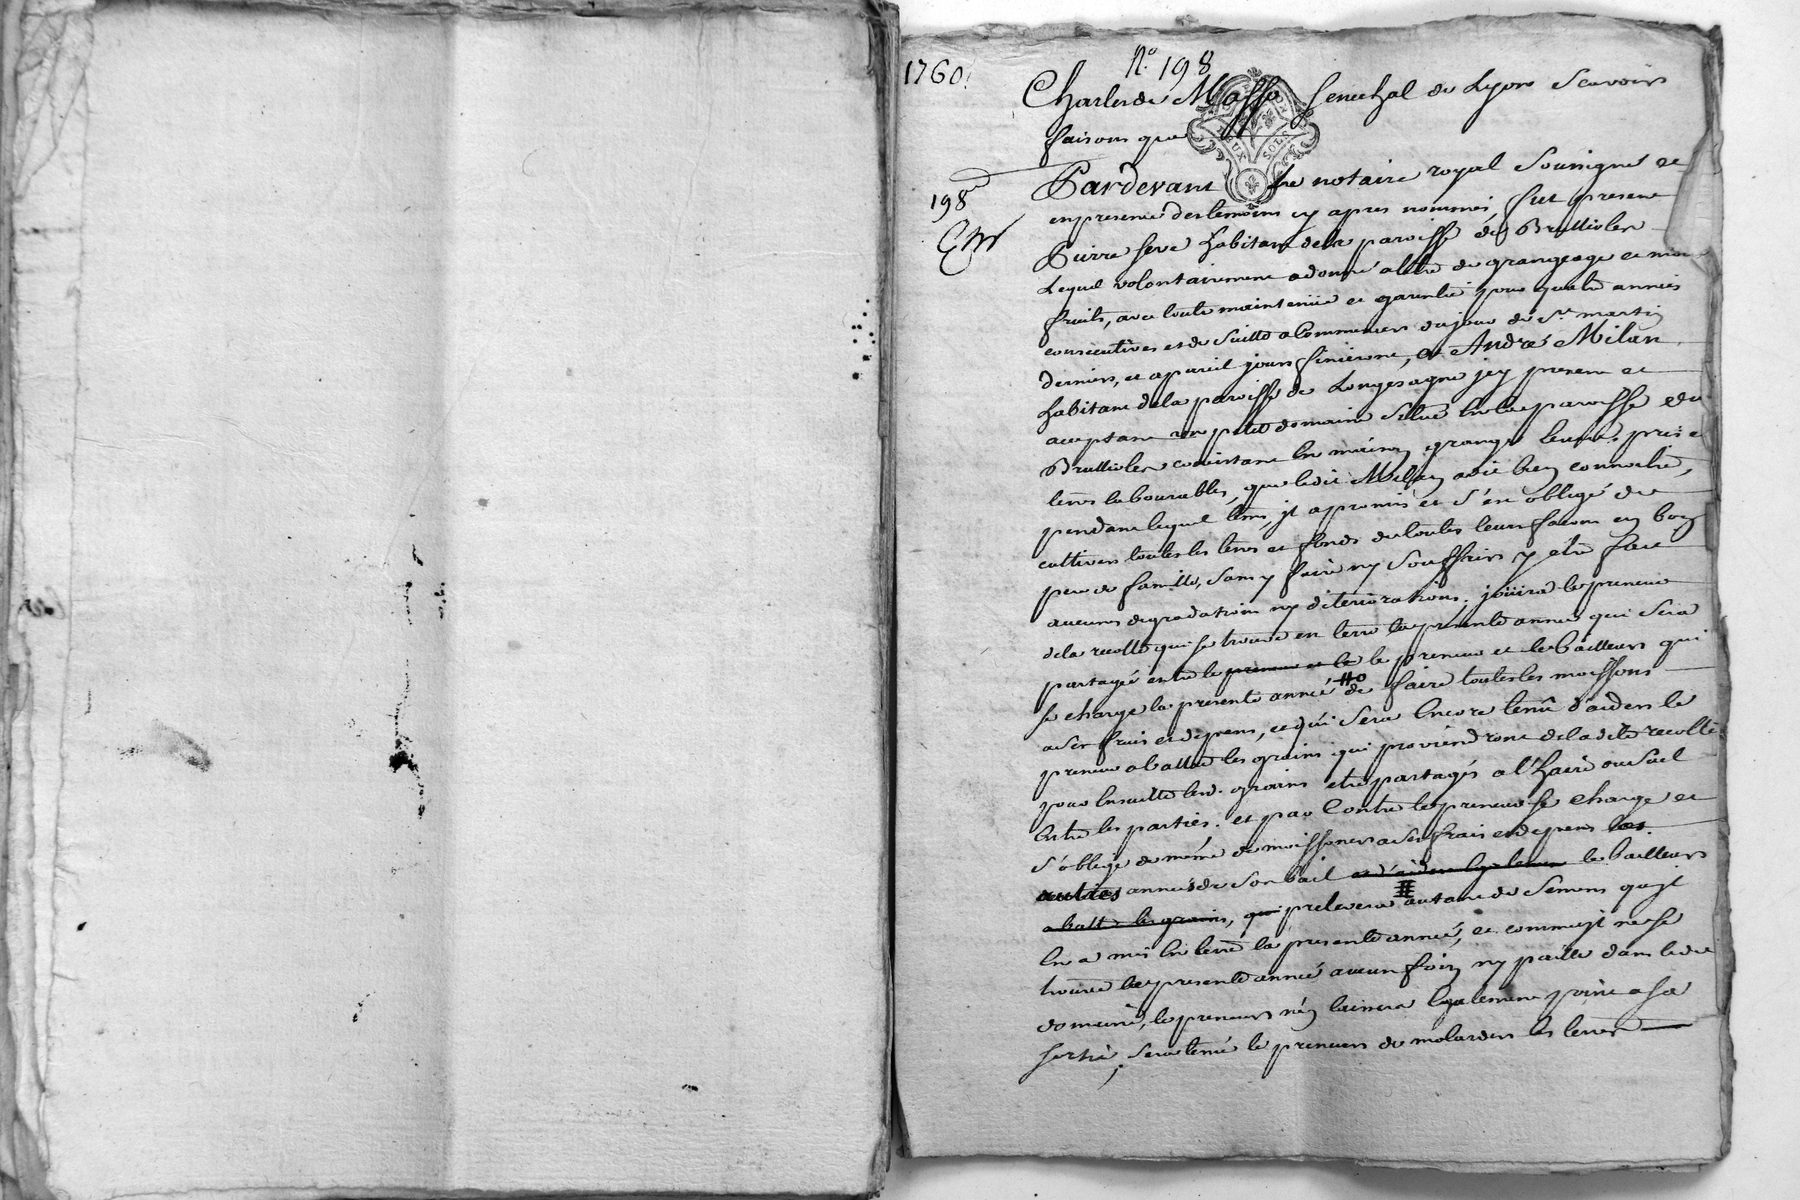 1760.
N.° 198
Charles de Masso Senechal de Lyon Scavoir
faisons que
DEUX SOLS
198e
Pardevant le notaire royal Soussigné et
en presence des temoins cy apres nommés, fut present
Pierre Seve habitant dela paroisse de Brullioles
Lequel volontairement a donné a titre de grangeage et mi
fruits, avec toute maintenüe et garentie pour quatre années
consecutives et de Suitte a Commencer du jour de St martin
dernier, et a pareil jour finiront, a André Milan
habitant dela paroisse de Longesagne jcy present et
acceptant un petit domaine Situé En lad paroisse de
Brullioles consistant En maison, grange terres, prés e
terres labourables, que ledit Milan a dit bien connoitre,
pendant lequel tems, jl a promis et s'est obligé de
cultiver toutes les terres et fonds de toutes leurs facons en bon
pere de famille, sans y faire ny Souffrir y etre fait
aucunes degradations ny déteriorations; joüira le preneur
dela recolte qui se trouve en terre la presente année qui Sera
partagé entre le preneur et le le preneur et le bailleur qui
se charge la presente année de faire toutes les moissons
a ses frais et depens, et qui Sera Encore tenû d'aider le
preneur a battre les grains qui proviendront dela dite recolte
pour Ensuitte lesd. grains etre partagés a l'haire ou Sol
Entre les parties. et par Contre le preneur se charge et
s'oblige de même de moissoner a Ses frais et depens les
autres années de Son bail et d'aider le bailleur
a batt les grains, qui prelevera autant de Semens qu'jl
En a mis En terre la presente année, et comme jl ne se
trouve la presente année aucun foin ny paille dans ledit
domaine, le preneur n'en laissera Egalement point a sa
sortie; Sera tenu le preneur de molarder les terres